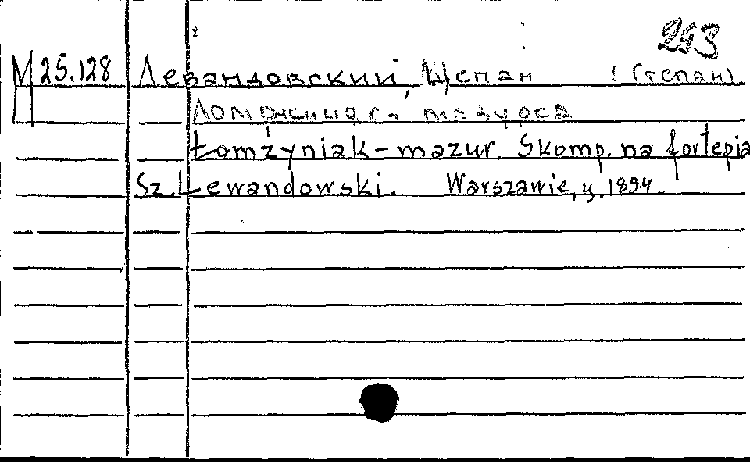 253
М 25.128 Левандовский, Щепан (Степан)
П
мазурка
Łomżyniak-mazur. Skomp. na fortepia
Sz. Lewandowski. Warszawie, 1894.